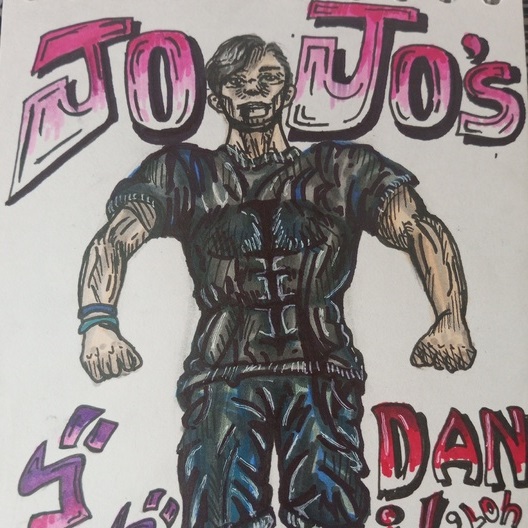 JoJo's
ゴ
ゴ
DAN